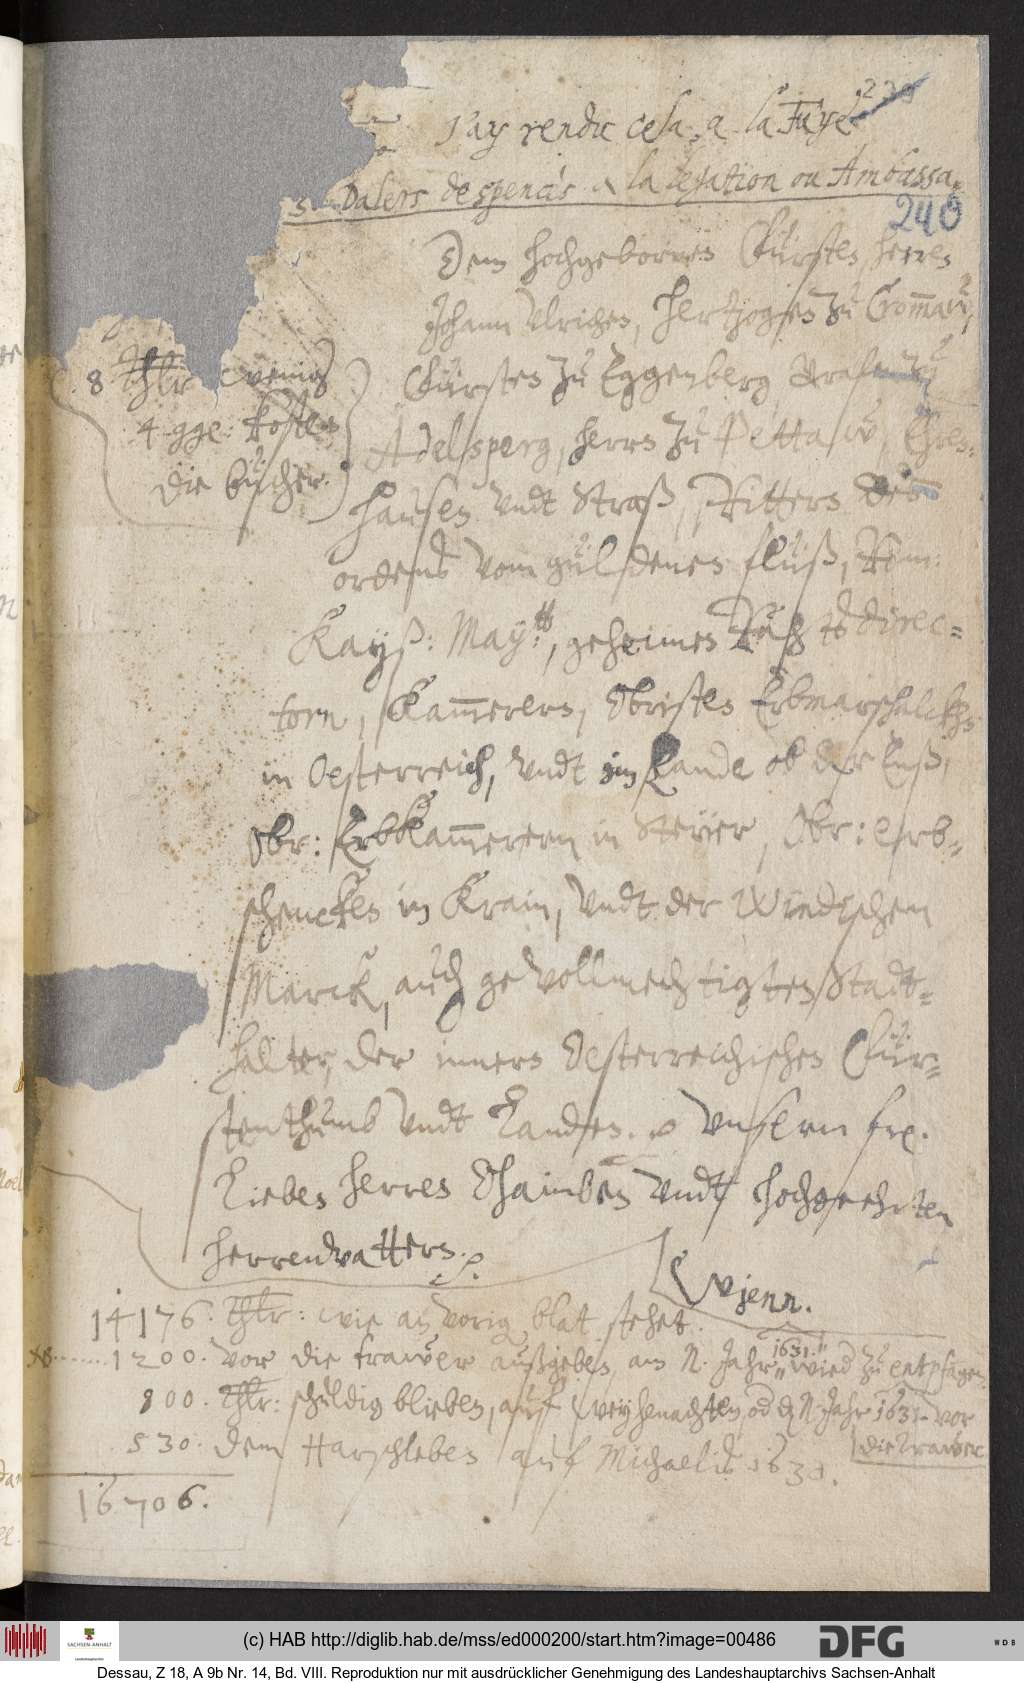 239
J'ay rendu cela a la Fuye
3 Dalers despences a la legation ou Ambassa-
240
Dem hochgebornen Fürsten, herren
Johann Ulrichen, hertzogen zu Crommau,
Fürsten zu Eggenberg, Grafen zu
Adelsperg, herrn zu Pettaw, Ehren-
hausen undt Straß, Rittern des
ordens vom güldenen fluß, Röm:
Kayß: May:tt, geheimen Rath direc-
torn, Kammerern, Obristen Erbmarschalckhn
in Oesterreich, undt im Lande ob der Enß,
Obr: ErbKammerern in Steyer, Obr: erb-
schencken in Krain, undt der Windischen
Marck, auch gevollmechtigsten Stadt-
halter, der innern Oesterreichischen Für-
stenthumb undt Landen. unsern fre.
Lieben herren Ohaimben undt hochgeehrten
herrenvattern.
Wienn.
8 Thlr weniger
4 gge: kosten
die bücher.
14176. Thlr: wie an vorig blatt stehet.
1200. vor die trawer außgeben, am N. Jahr 1631. wied zu entpfangen
800. Thlr: schuldig blieben, auf Weyhenachten, od N. Jahr 1631. vor
die trawer
530. dem Harschleben auf Michaelis 1631.
16706.
(c) HAB http://diglib.hab.de/mss/ed000200/start.htm?image=00486
SACHSEN-ANHALT
Landeshauptarchiv
DFG
WDB
Dessau, Z 18, A 9b Nr. 14, Bd. VIII. Reproduktion nur mit ausdrücklicher Genehmigung des Landeshauptarchivs Sachsen-Anhalt